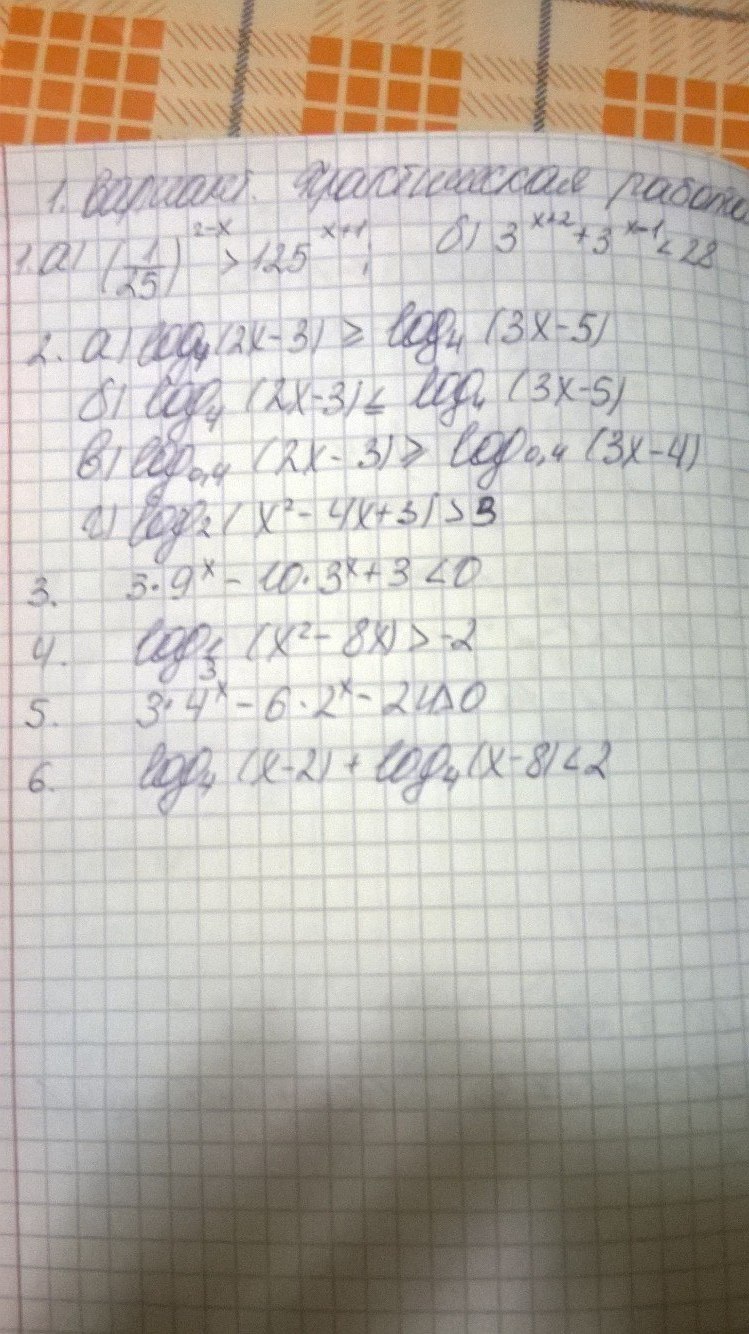 1. Вариант. Практическая работа
1. а) (1/25)^(2-x) > 125^(x+1); б) 3^(x+2) + 3^(x-1) < 28
2. а) log₄(2x-3) ≥ log₄(3x-5)
б) log₄(2x-3) ≤ log₄(3x-5)
в) log₀,₄(2x-3) ≥ log₀,₄(3x-4)
г) log₂(x²-4x+3) > 3
3. 3·9^x - 10·3^x + 3 < 0
4. (x²-8x) > -2
5. 3·4^x - 6·2^x -
6. log₄(x-2) + log₄(x-8) < 2